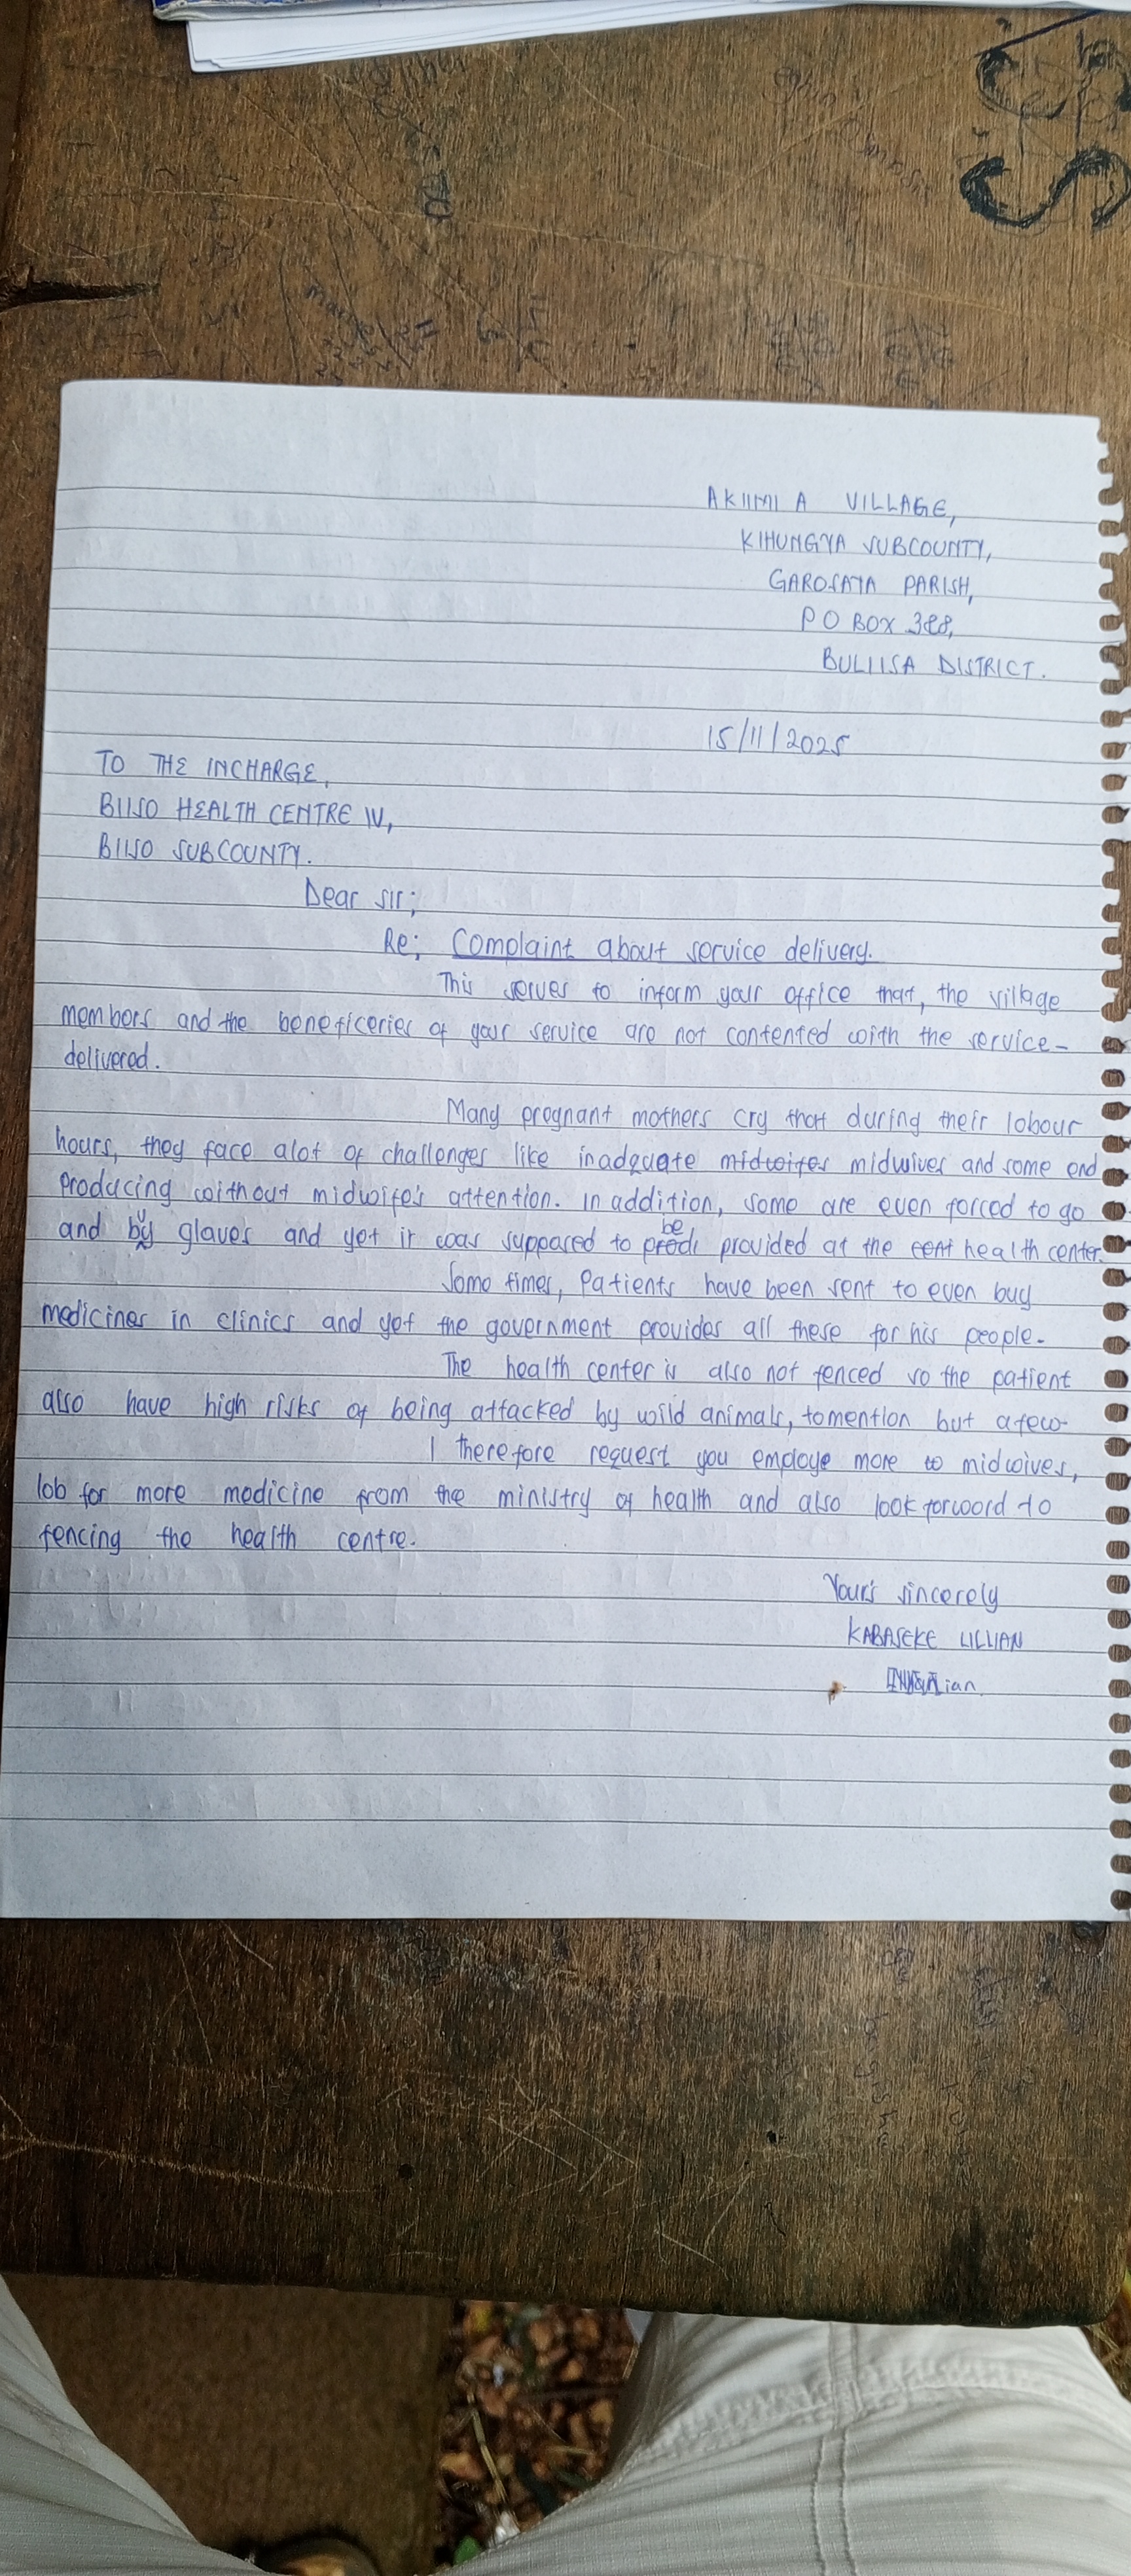 AKIIMI A VILLAGE,
KIHUNGYA SUBCOUNTY,
GAROSAYA PARISH,
P O BOX 328,
BULIISA DISTRICT.
15/11/2025
TO THE INCHARGE,
BIISO HEALTH CENTRE IV,
BIISO SUBCOUNTY.
Dear sir;
Re; Complaint about service delivery.
This serves to inform your office that, the village
members and the beneficeries of your service are not contented with the service-
delivered.
Many pregnant mothers cry that during their labour
hours, they face alot of challenges like inadquate midwifes midwives and some end
producing without midwife's attention. In addition, some are even forced to go
and buy gloves and yet it was supposed to be provided at the cent health center.
Some times, patients have been sent to even buy
medicines in clinics and yet the government provides all these for his people.
The health center is also not fenced so the patient
also have high risks of being attacked by wild animals, tomention but afew
I therefore request you employe more to midwives,
lob for more medicine from the ministry of health and also look forword to
fencing the health centre.
Yours sincerely
KABASEKE LILLIAN